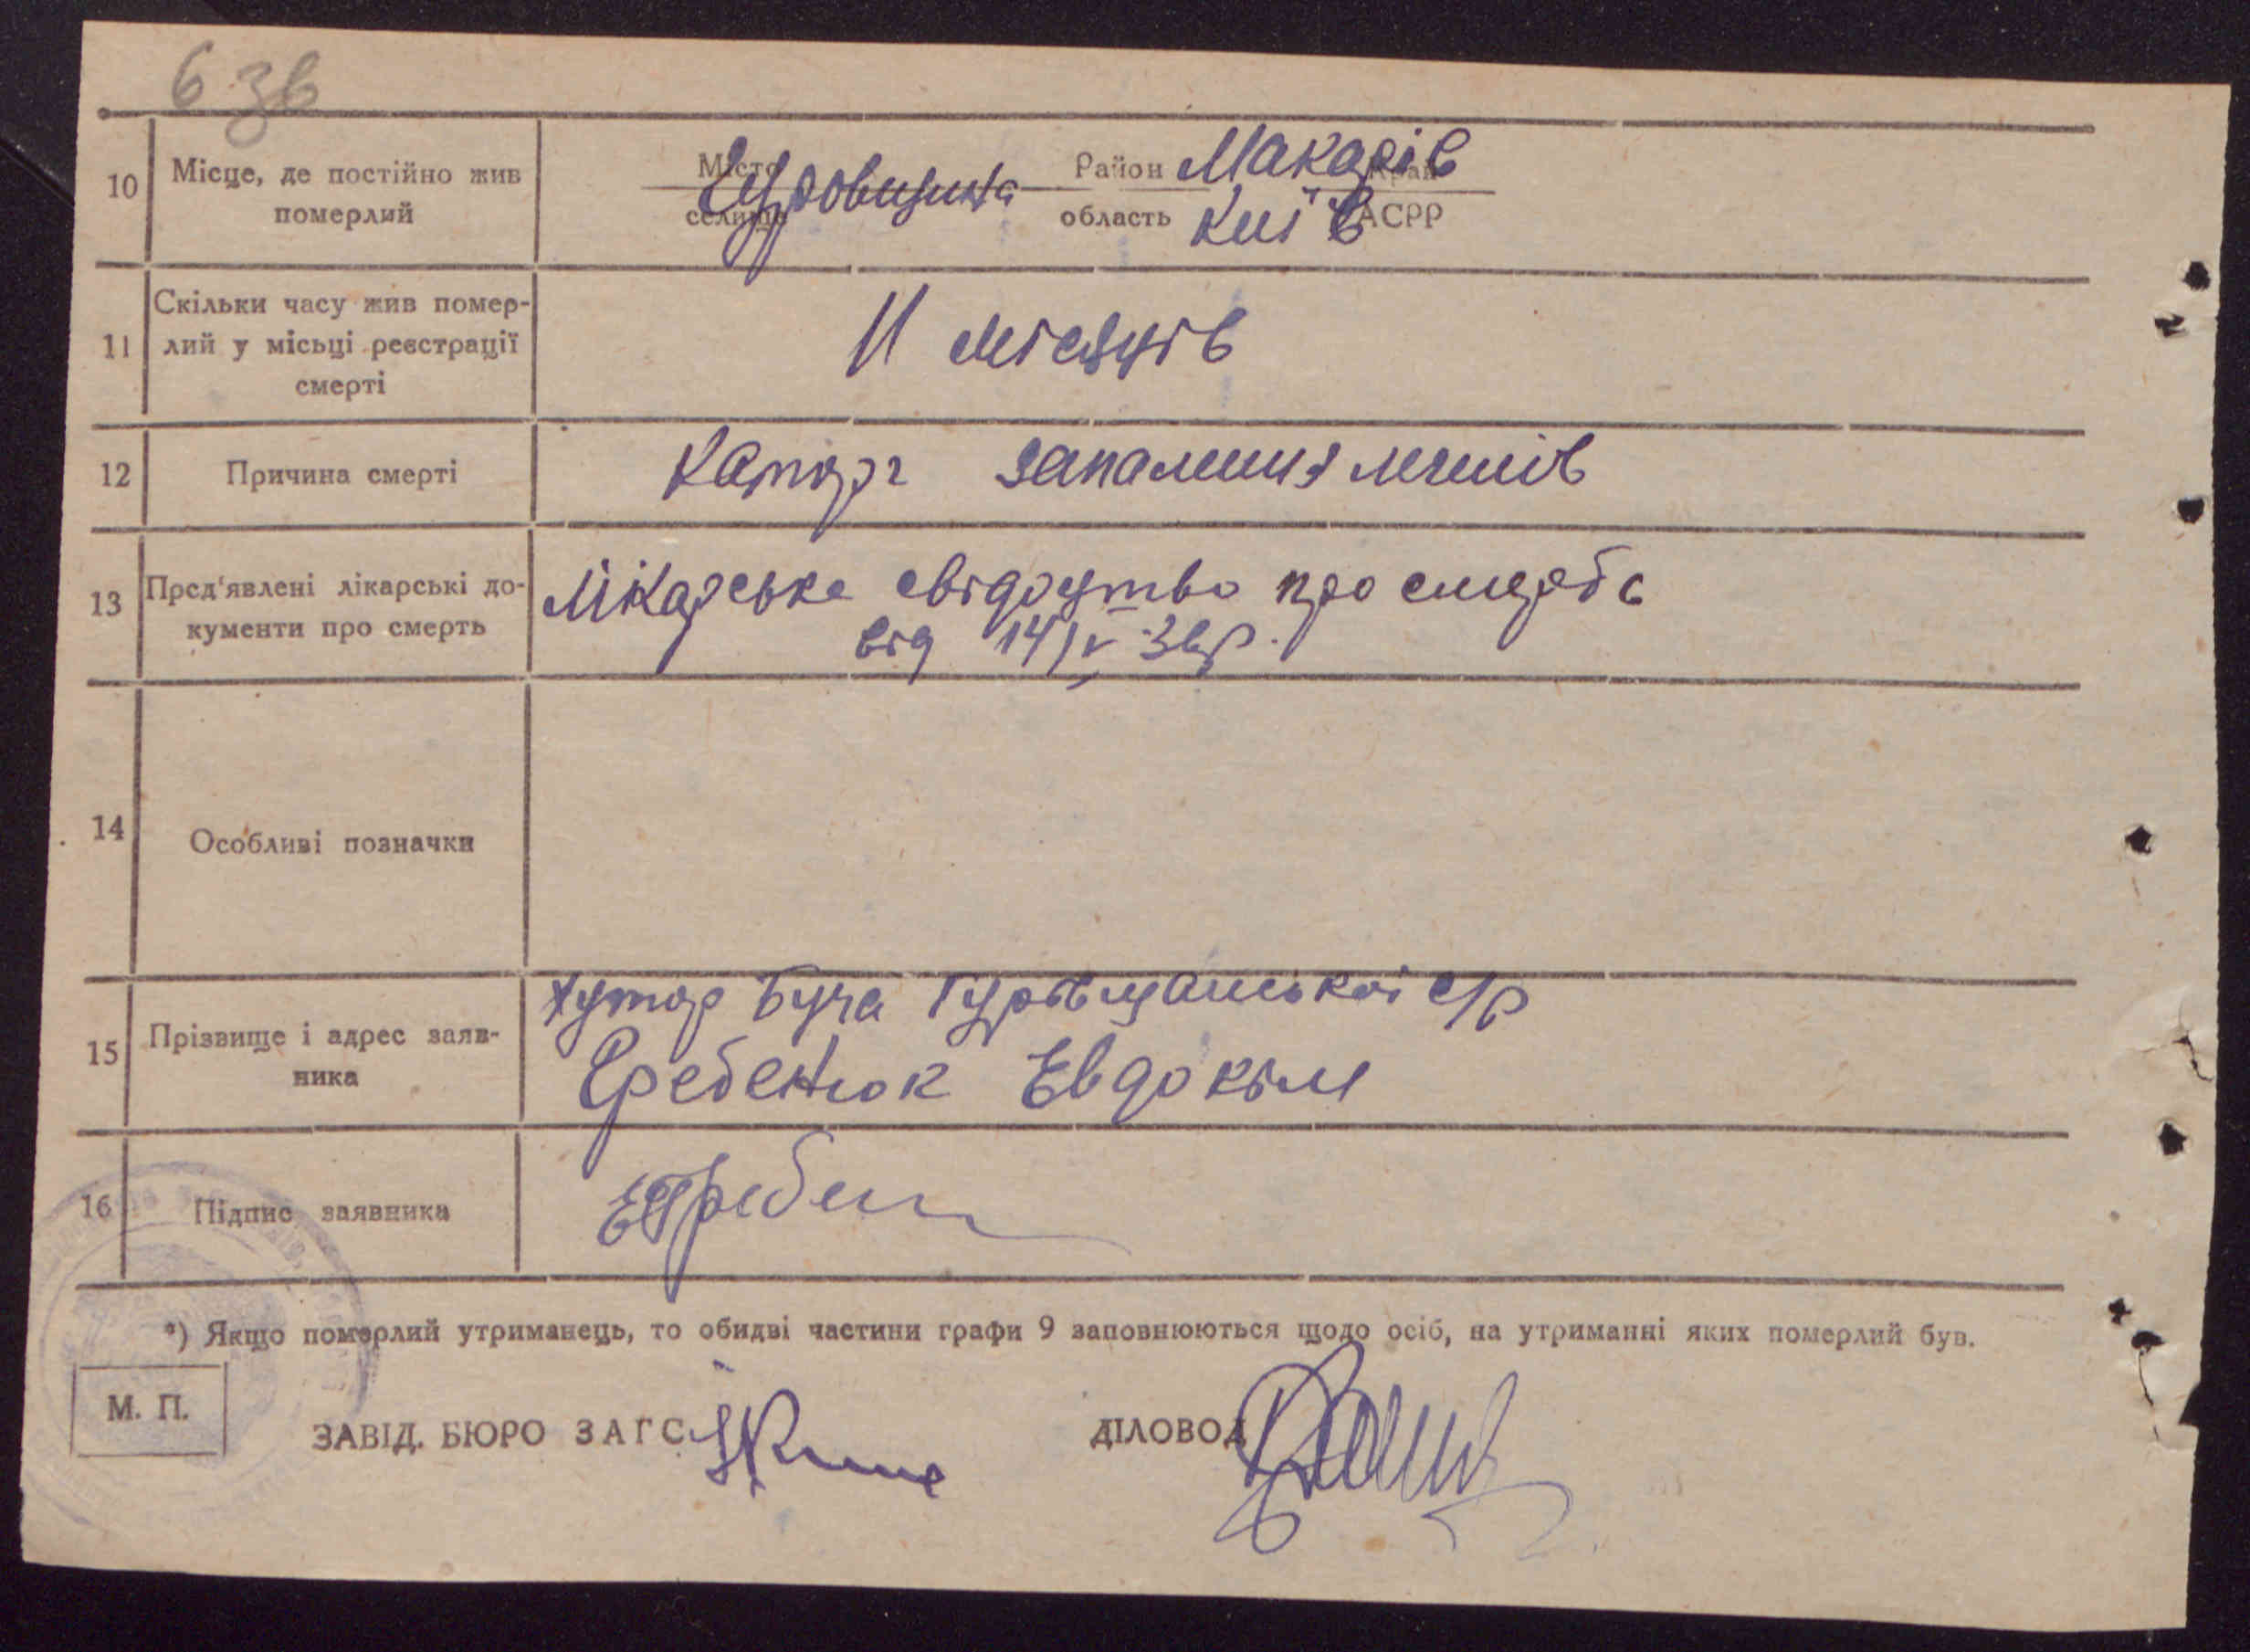 6 зв
10 Місце, де постійно жив померлий
Місто селище Гуровщина Район Макарів Край
область Київ АСРР
11 Скільки часу жив помер-
лий у місьці реєстрації
смерті
11 місяців
12 Причина смерті
Катар запалиния легенів
13 Пред'явлені лікарські до-
кументи про смерть
Лікарське свідоцтво про смерть
від 14/IV 36р.
14 Особливі позначки
15 Прізвище і адрес заяв-
ника
Хутор Буча Гуровщанської с/р
Гребенюк Евдоким
16 Підпис заявника
ЕГребен
*) Якщо померлий утриманець, то обидві частини графи 9 заповнюються щодо осіб, на утриманні яких померлий був.
М. П.
ЗАВІД. БЮРО ЗАГС
ДІЛОВОД